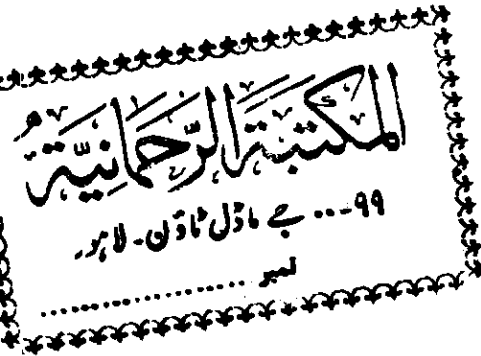 المکتبۃ الرّحمانیّۃ
۹۹... جے ماڈل ٹاؤن۔ لاہور
نمبر ....................